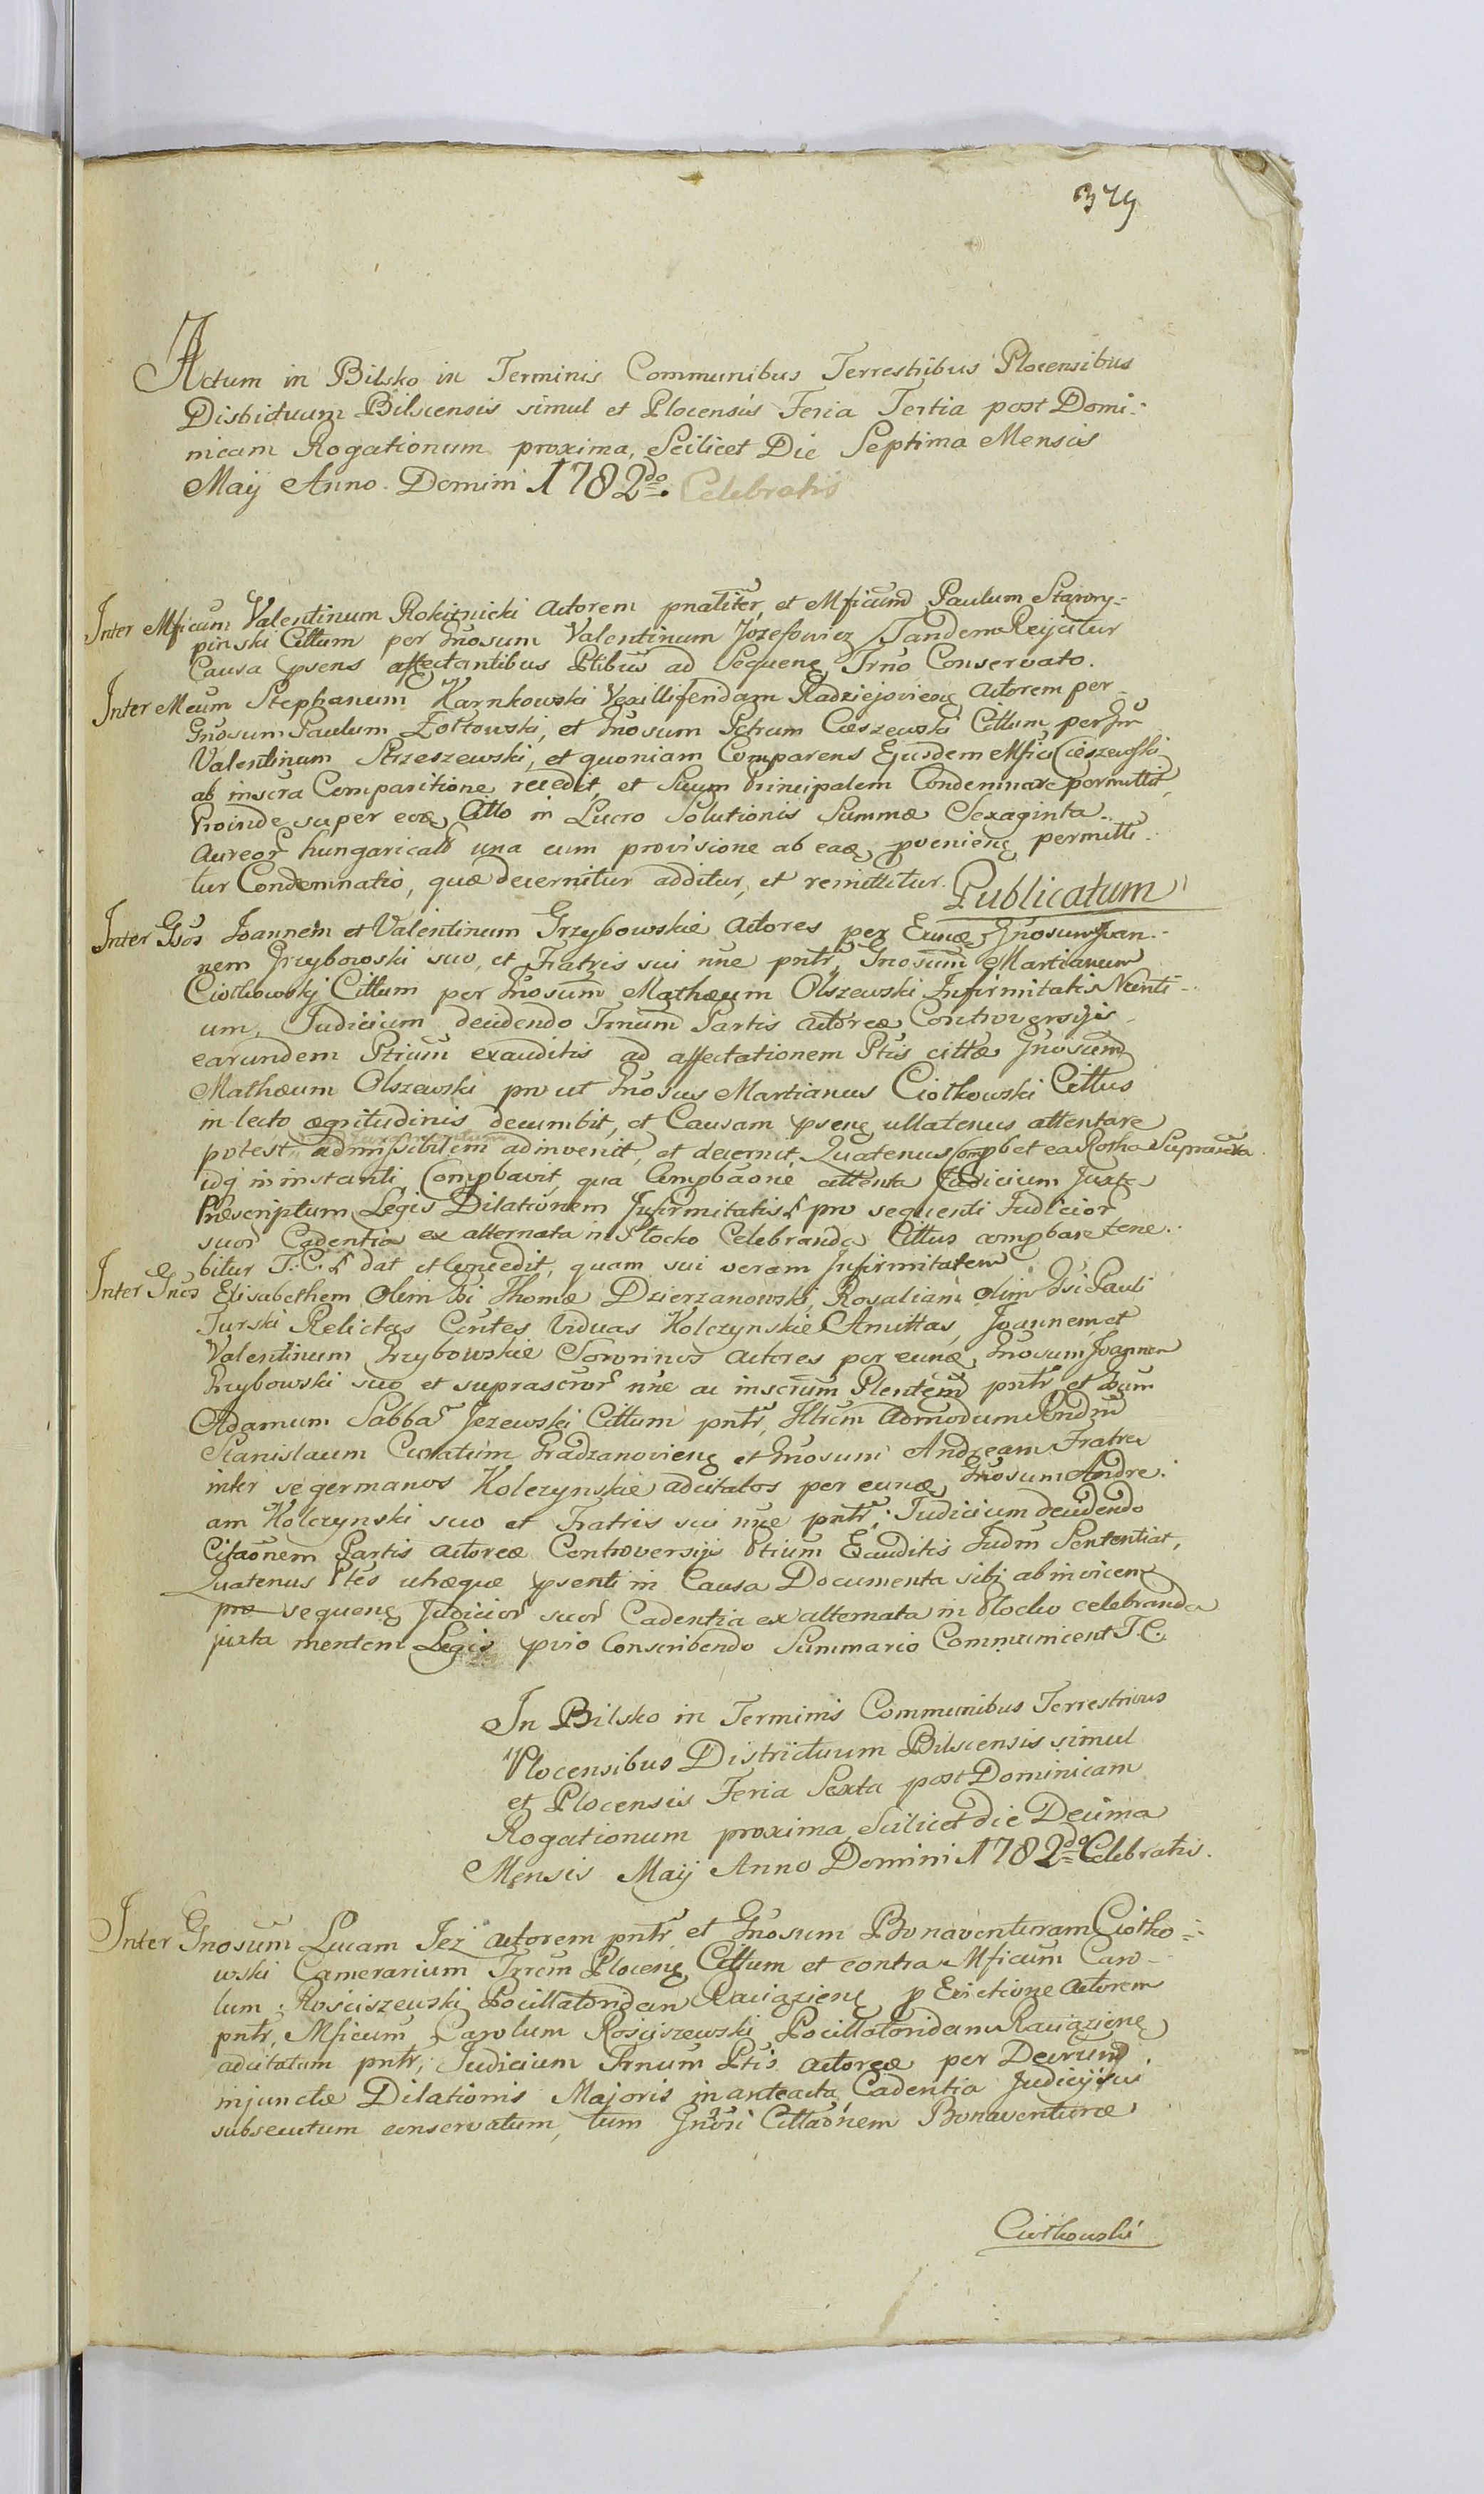 379
Actum in Bilsko in Terminis Communibus Terrestribus Plocensibus
Districtuum Bilscensis simul et Plocensis Feria Tertia post Domi-
nicam Rogationum proxima, Scilicet Die Septima Mensis
Maij Anno Domini 1782do. Celebratis
Inter Mficum Valentinum Rokitnicki Actorem pnaliter, et Mficum Paulum Starory-
pinski Cittum per Gnosum Valentinum Józefowicz Tandem Reijcitur
Causa psens affectantibus Ptibus ad Sequens Trno Conservato.
Inter Mcum Stephanum Karnkowski Vexilliferidam Radziejoviens Actorem per
Gnosum Paulum Zołtowski, et Gnosum Petrum Cieszewski Cittum per Gm
Valentinum Strzeszewski, et quoniam Comparens Ejusdem Mfici Cieszewski
ab inscra Comparitione recedit, et Suum Principalem Condemnare permittit,
Proinde super eoq Citto in Lucro Solutionis Summæ Sexaginta
Aureor hungarical una cum provisione ab eaq proveniens permitti-
tur Condemnatio, quæ decernitur additur, et remittitur. Publicatum
Inter Gsos Joannem et Valentinum Grzybowskie Actores per Eunq Gnosum Joan-
nem Grzybowski suo, et Fratris sui nne pntr, Gnosum Martianum
Ciołkowskj Cittum per Gnosum Mathæum Olszewski Infirmitatis Nunti-
um, Judicium decidendo Trnum Partis Actoreæ Controversijs
earundem Ptium exauditis ad affectationem Ptis cittæ Gnosum
Mathæum Olszewski prout Gnosus Martianus Ciołkowski Cittus
in lecto ægritudinis decumbit, et Causam psens ullatenus attentare
potest admissibilem adinvenit, et decernit Quatenus compbet ea Rotha Suprascta
idq in instanti Compbavit, qua Compbaone attenta Judicium Juxta
Præscriptum Legis Dilationem Infirmitatis pro sequenti Judicior
suor Cadentia ex alternata in Płocko Celebranda Cittus compbare tene-
bitur T. C. dat et Concedit, quam sui veram Infirmitatem
Inter Gnos Elisabethem Olim Gsi Thomæ Dzierzanowski, Rosaliam olim Gsi Pauli
Turski Relictas Contes Viduas Kolczynskie Amittas, Joannem et
Valentinum Grzybowskie Sororinos Actores per eunq Gnosum Joannem
Grzybowski suo et suprascror nne ac inscrum Plentem pntr et Gsum
Adamum Sabbar Jezewski Cittum pntr, Iltrem Admodum Rndm
Stanislaum Curatum Gradzanoviens et Gnosum Andream Fratres
inter se germanos Kolczynskie adcitatos per eunq Gnosum Andre-
am Kolczynski suo et Fratris sui nne pntr; Judicium decidendo
Citaonem Partis Actoreæ Controversijs Ptium Exauditis Judm Sententiat,
Quatenus Ptes utræque psenti in Causa Documenta sibi ab invicem
pro sequens Judicior suor Cadentia ex alternata in Płocko celebranda
juxta mentem Legis pvio Conscribendo Summario Communicent T. C.
In Bilsko in Terminis Communibus Terrestribus
Plocensibus Districtuum Bilscensis simul
et Plocensis Feria Sexta post Dominicam
Rogationum proxima, Scilicet die Decima
Mensis Maij Anno Domini 1782do Celebratis.
Inter Gnosum Lucam Jez Actorem pntr et Gnosum Bonaventuram Ciołko=
wski Camerarium Trrem Plocens Cittum et contra Mficum Caro-
lum Rosciszewski Pocillatoridam Raciaziens p Evictione Actorem
pntr, Mficum Carolum Rosciszewski Pocillatoridam Raciaziens
adcitatum pntr; Judicium Trnum Ptis Actoreæ per Decrum
injunctæ Dilationis Majoris in anteacta Cadentia Judicij sui
subsecutum conservatum, tum Gnosi Cittaonem Bonaventuræ
Ciołkowski